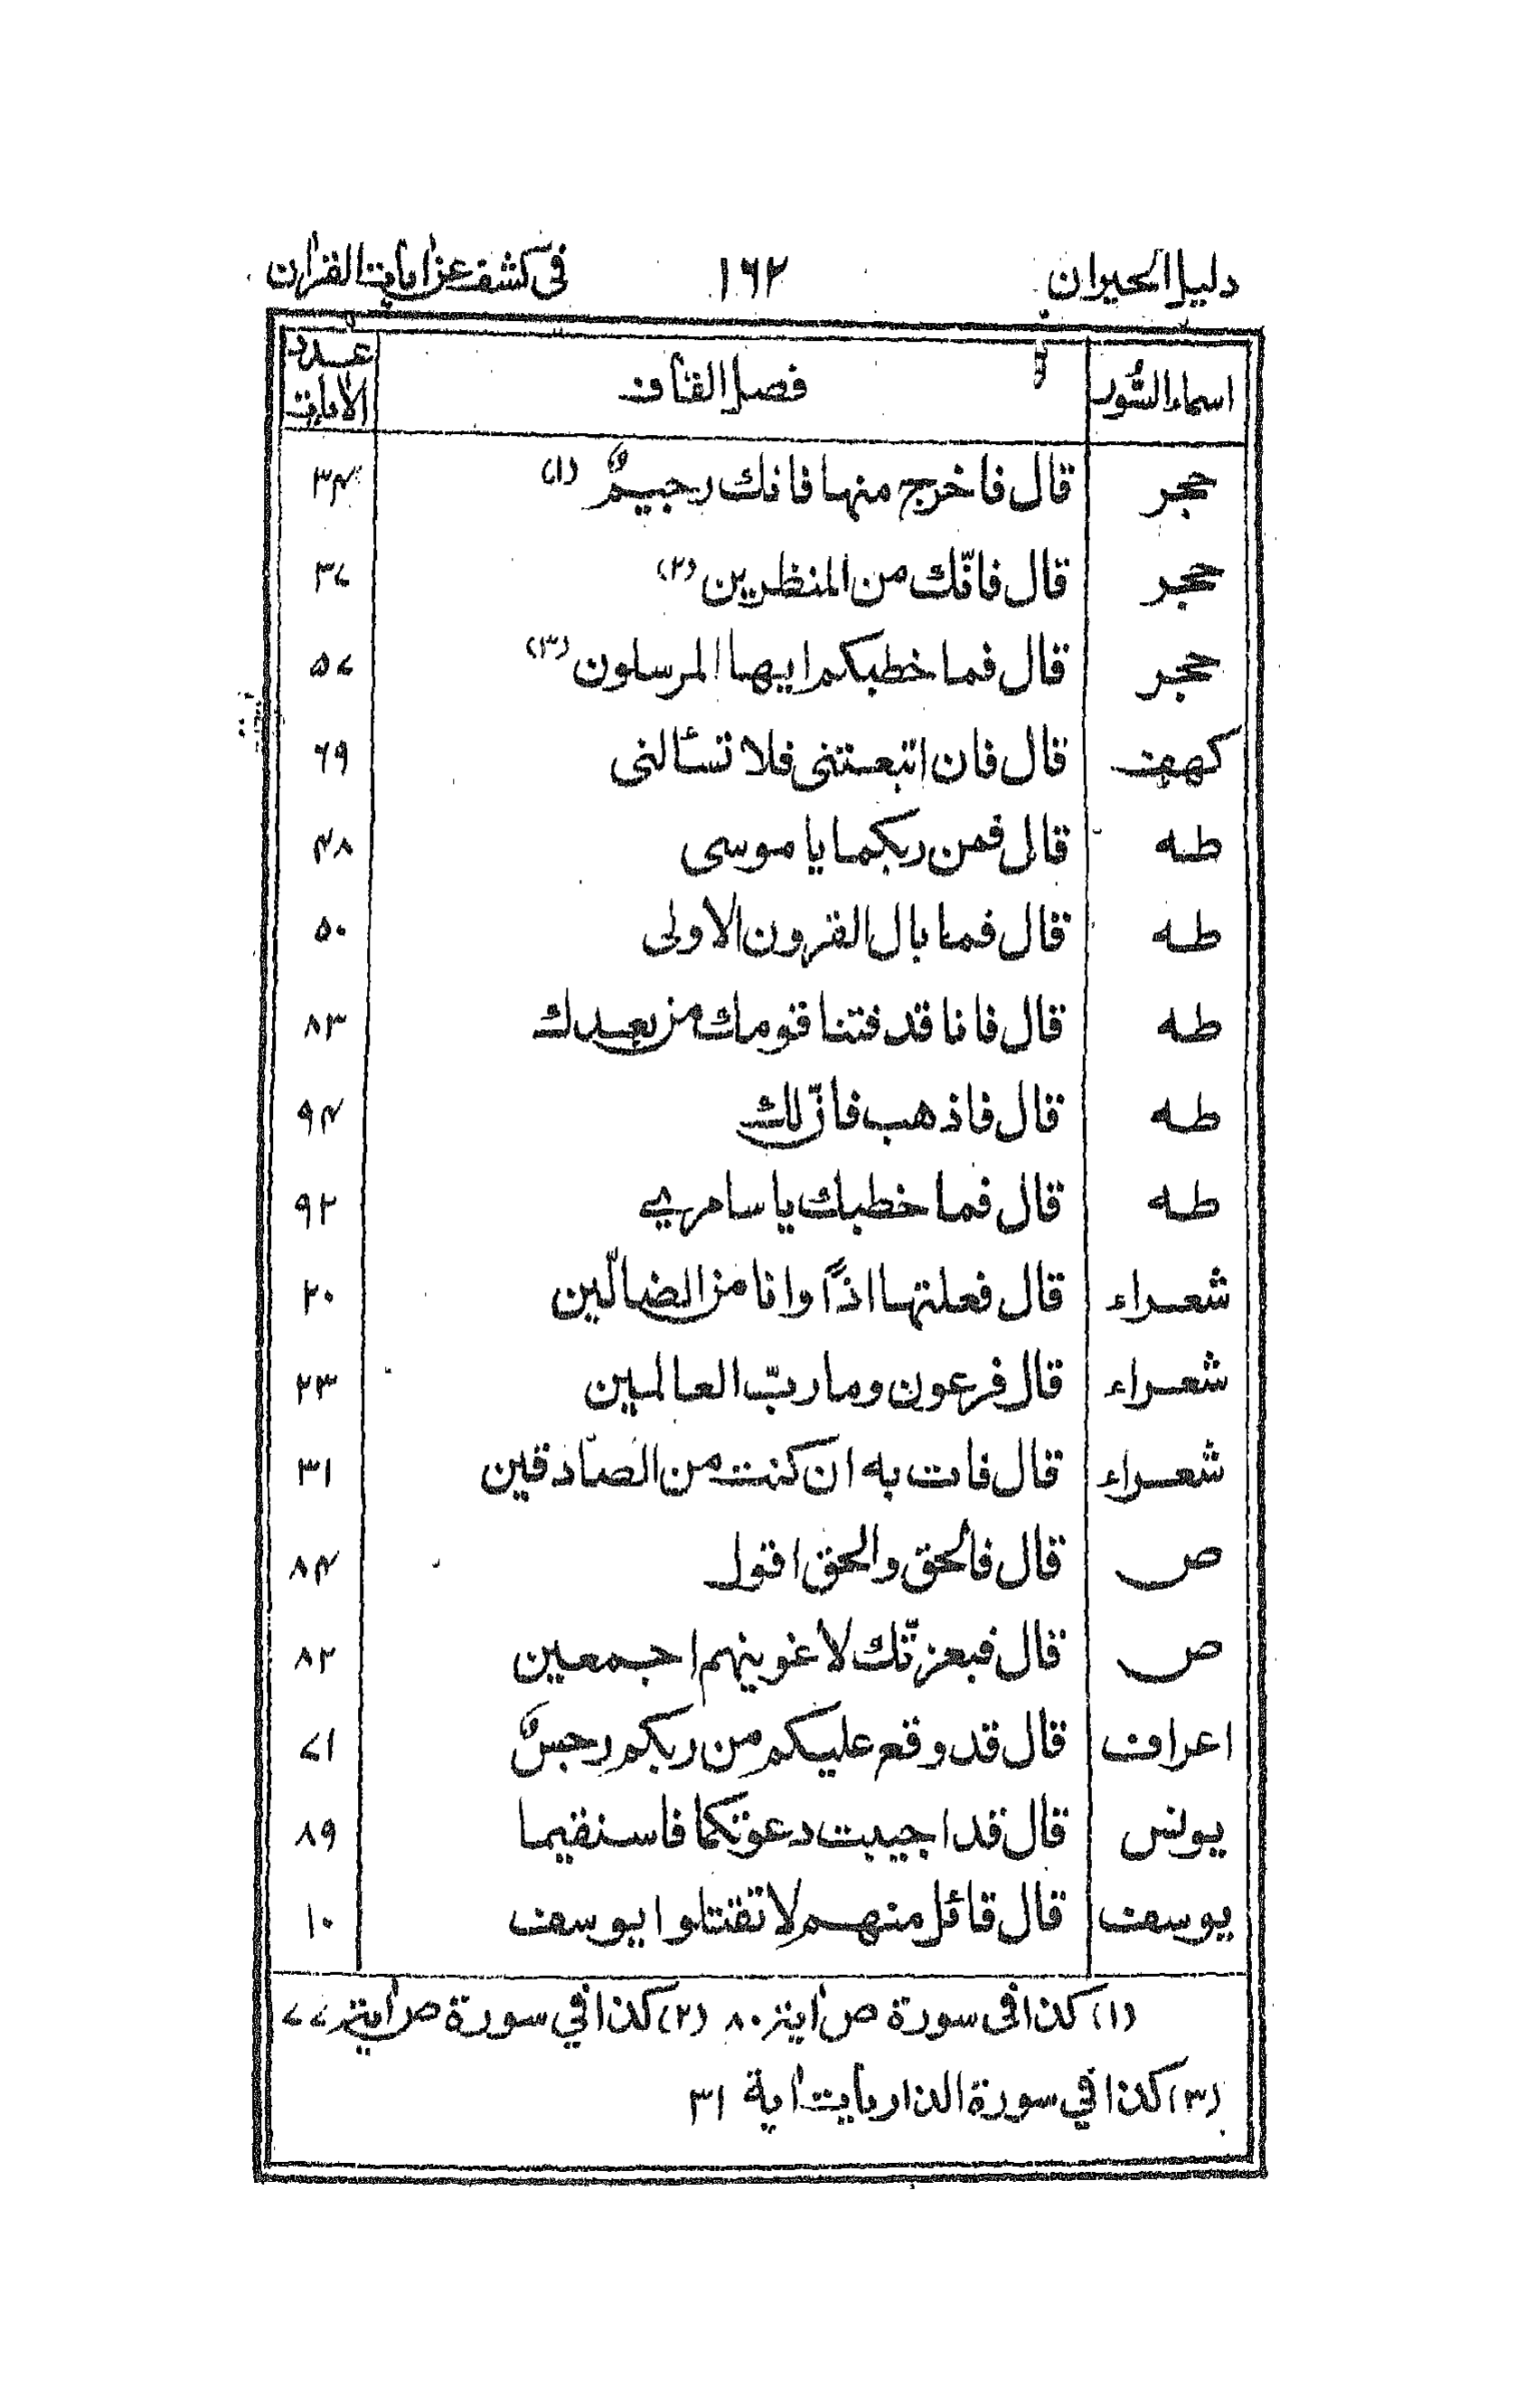 دليل الحيران ١٦٢ فى كشف عن ايات القران
اسماء السُّور فصل القاف عدد الايات
حجر قال فاخرج منها فانك رجيمٌ (١) ٣٤
حجر قال فانّك من المنظرين (٢) ٣٧
حجر قال فما خطبكم ايها المرسلون (٣) ٥٧
كهف قال فان اتبعتنى فلا تسألنى ٦٩
طه قال فمن ربكما يا موسى ٤٨
طه قال فما بال القرون الاولى ٥٠
طه قال فانا قد فتنا قومك من بعدك ٨٣
طه قال فاذهب فانّ لك ٩٤
طه قال فما خطبك يا سامري ٩٢
شعراء قال فعلتها اذًا وانا من الضالّين ٢٠
شعراء قال فرعون وما ربّ العالمين ٢٣
شعراء قال فات به ان كنت من الصادقين ٣١
ص قال فالحق والحق اقول ٨٤
ص قال فبعزتّك لاغوينهم اجمعين ٨٢
اعراف قال قد وقع عليكم من ربكم رجسٌ ٧١
يونس قال قد اجيبت دعوتكما فاستقيما ٨٩
يوسف قال قائل منهم لا تقتلوا يوسف ١٠
(١) كذا فى سورة ص اية ٨٠ (٢) كذا في سورة ص اية ٧٧
(٣) كذا في سورة الذاريات اية ٣١